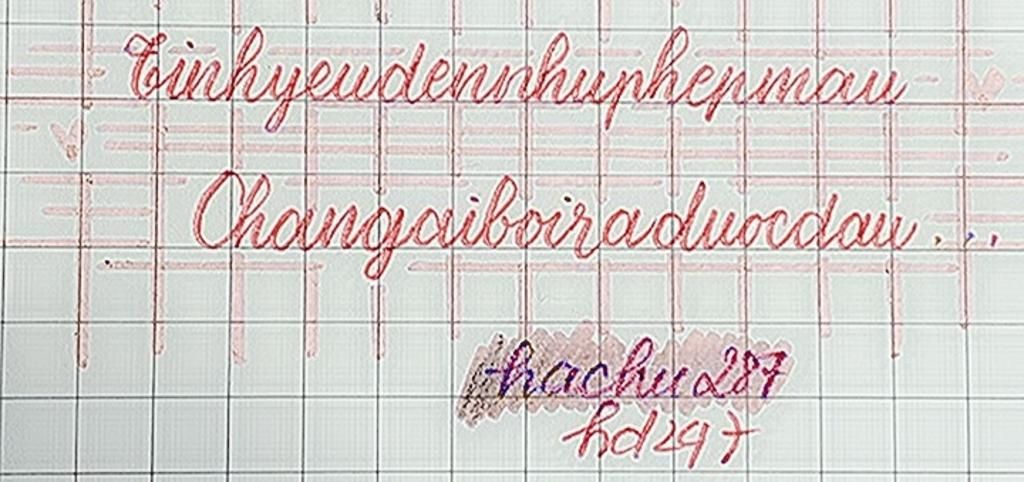 Tinhyeudennhuphepmau
Changaiboiraduocdau...
hachu287
hd247